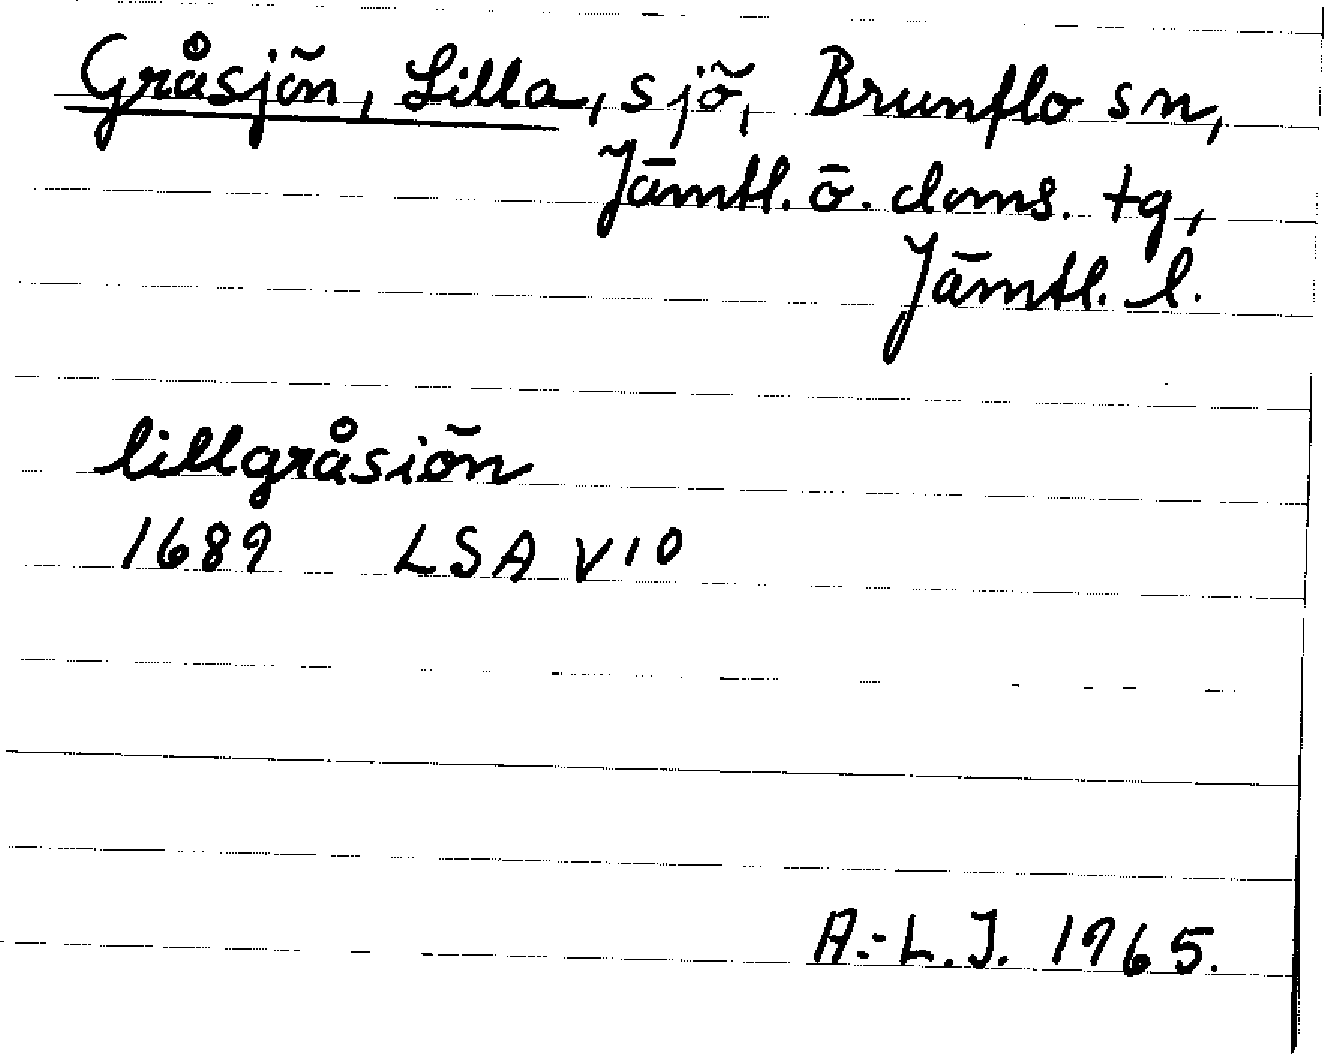 Gråsjön, Lilla, sjö, Brunflo sn,
Jämtl. ö. doms. tg,
Jämtl. l.
lillgråsiön
1689 LSA V10
A.-L.J. 1965.